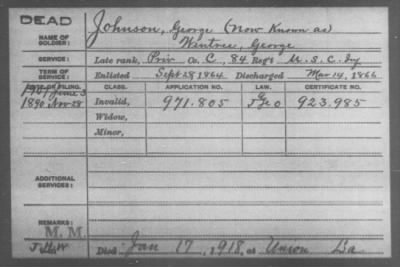 DEAD
NAME OF SOLDIER: Johnson, George (Now Known as)
Wintree, George
SERVICE: Late rank, Priv Co. C, 84 Reg't U. S. C. Inf
TERM OF SERVICE: Enlisted Sept 28 1864. Discharged Mar 14, 1866
DATE OF FILING. CLASS. APPLICATION NO. LAW. CERTIFICATE NO.
June 3
1890 Nov 28 Invalid, 971.805 923.985
Widow,
Minor,
ADDITIONAL SERVICES:
REMARKS:
M. M.
Died Jan 17, 1918, at Union La